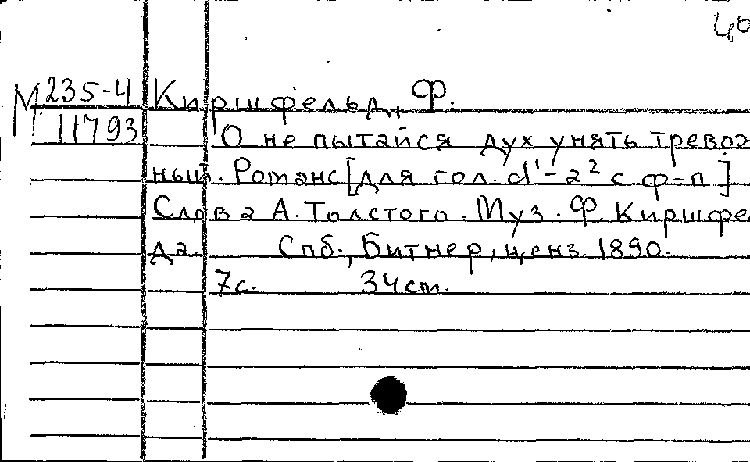 40
М 235-4 Киршфельд, Ф.
11793 О не пытайся дух унять тревож
ный. Романс [для гол. d¹-a² с ф-п]
Слова А. Толстого. Муз. Ф Киршфе
да. Спб., Битнер, ценз. 1890.
7с. 34 cm.